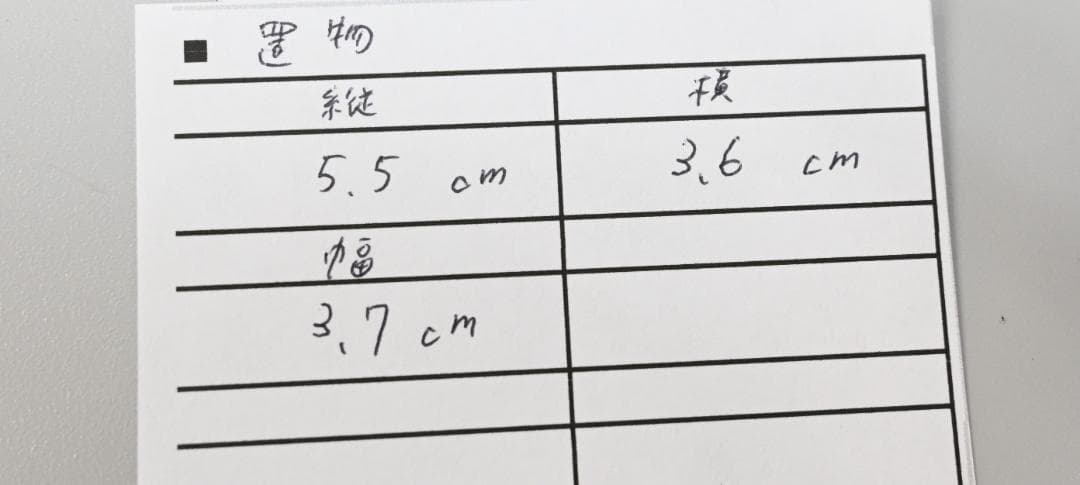 ■ 置物
縦 横
5.5 cm 3.6 cm
幅
3.7 cm